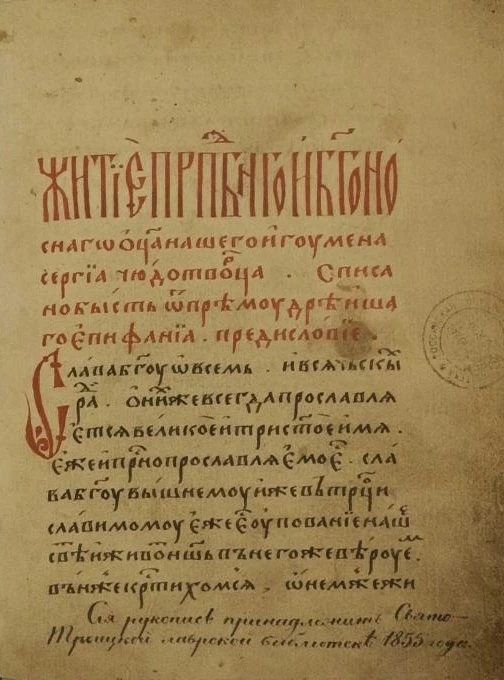 ЖИТЇЕ ПРПⷣБНГО И БГОНО
снагѡ ѻц҃а нашего игоумена
сергїа чюдотворца . Списа
но бысть ѿ прѣмоудрѣиша
го епифанїа . предисловїе .
Слава бг҃оу ѡ всемь . и всячьскы
ра . ѻ них же всегда прославля
ется великое и трист҃ое имя .
еже и прⷭно прославляемо ест . сла
ва бг҃оу вышнемоу иже въ трц҃и
славимомоу еже есⷮ оупованїе наше
свѣт и живот нашь въ него же вѣроуеⷨ
вънже крⷭтихомся ѡ нем же жи
Сія рукопись принадлежитъ Свято-
Троицкой лаврской библіотекѣ 1855 года.